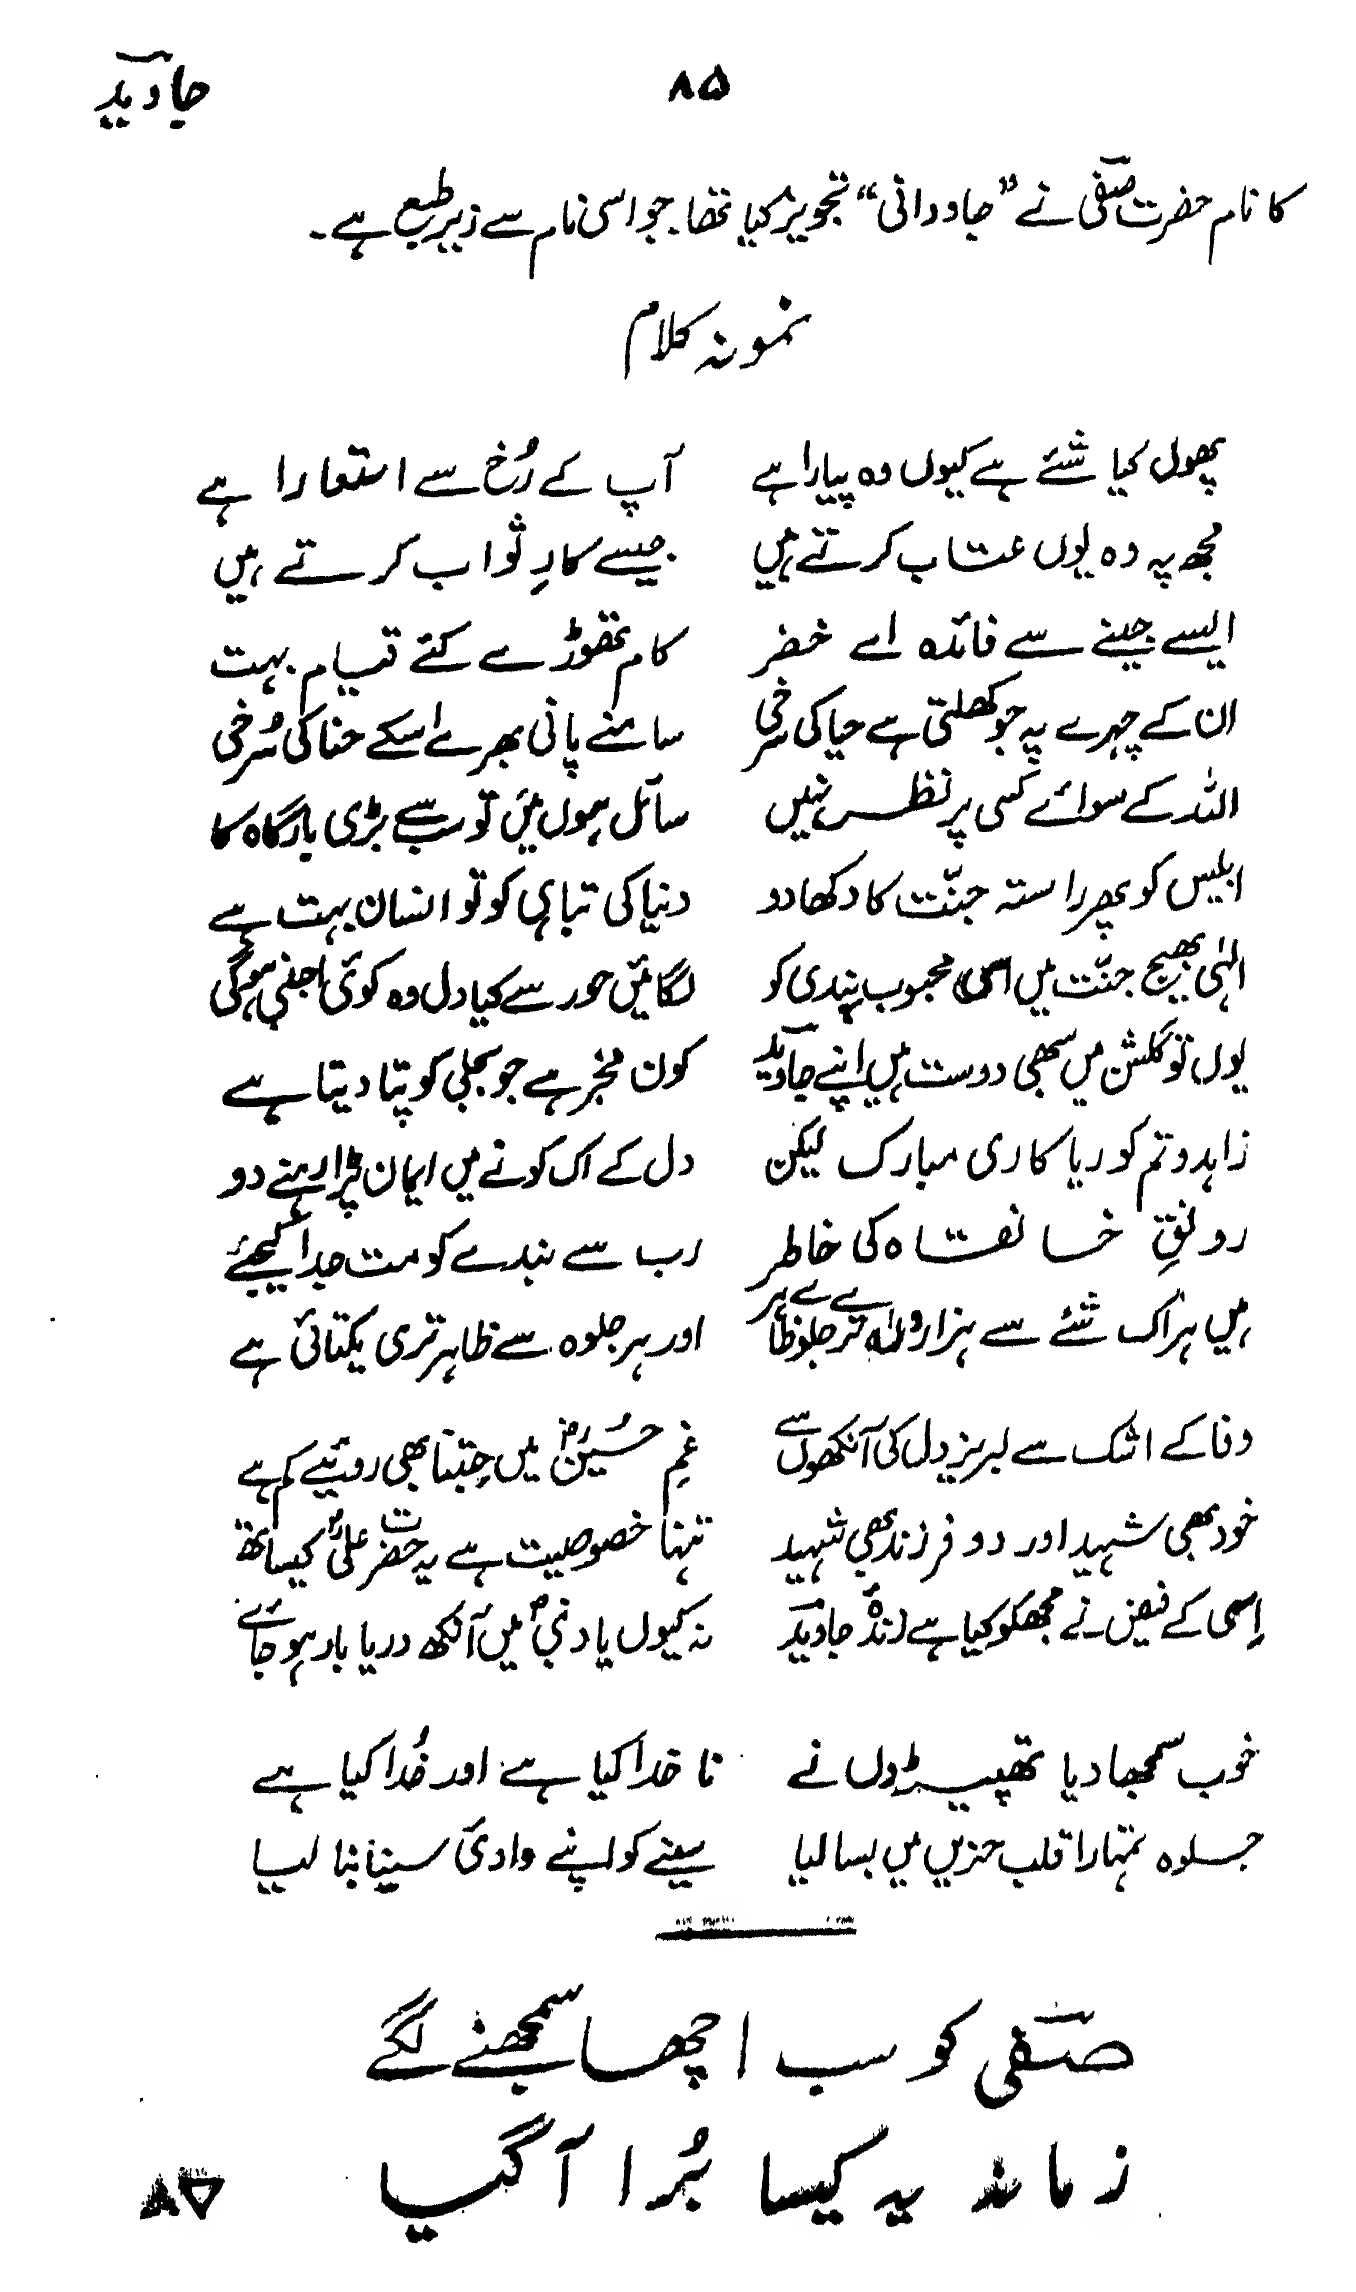 جاوید
۸۵
کا نام حضرت صفی نے "جاودانی" تجویز کیا تھا۔ جو اسی نام سے زیر طبع ہے۔
نمونہ کلام
پھول کیا شئے ہے کیوں وہ پیارا ہے آپ کے رُخ سے استعارا ہے
مجھ پہ وہ یوں عتاب کرتے ہیں جیسے کارِ ثواب کرتے ہیں
ایسے جینے سے فائدہ اے خضر کام تھوڑے کئے قیام بہت
ان کے چہرے پہ جو کھلتی ہے حیا کی سرخی سامنے پانی بھرے اسکے حنا کی سُرخی
اللہ کے سوائے کسی پر نظر نہیں سائل ہوں میں تو سب سے بڑی بارگاہ کا
ابلیس کو پھر راستہ جنّت کا دکھا دو دنیا کی تباہی کو تو انسان بہت ہے
الٰہی بھیج جنّت میں اسی محبوب بندی کو لگائیں حور سے کیا دل وہ کوئی اجنبی ہوگی
یوں تو گلشن میں سبھی دوست ہیں اپنے جاوید کون مخبر ہے جو بجلی کو پتا دیتا ہے
زاہدو تم کو ریا کاری مبارک لیکن دل کے اک کونے میں ایمان پڑا رہنے دو
رونقِ خانقاہ کی خاطر رب سے بندے کو مت جدا کیجئے
ہیں ہر اک شئے سے ہزاروں ترے جلوے ظاہر اور ہر جلوہ سے ظاہر تری یکتائی ہے
وفا کے اشک سے لبریز دل کی آنکھوں سے غمِ حسینؓ میں جتنا بھی روئیے کم ہے
خود بھی شہید اور دو فرزند بھی شہید تنہا خصوصیت ہے یہ حضرت علیؓ کیساتھ
اِسی کے فیض نے مجھکو کیا ہے زندہ جاوید نہ کیوں یاد نبیؐ میں آنکھ دریا بار ہو جائے
خوب سمجھا دیا تھپیڑوں نے نا خدا کیا ہے اور خُدا کیا ہے
جلوہ تمہارا قلب حزیں میں بسا لیا سینے کو اپنے وادیٔ سینا بنا لیا
صفی کو سب اچھا سمجھنے لگے
زمانہ یہ کیسا بُرا آگیا